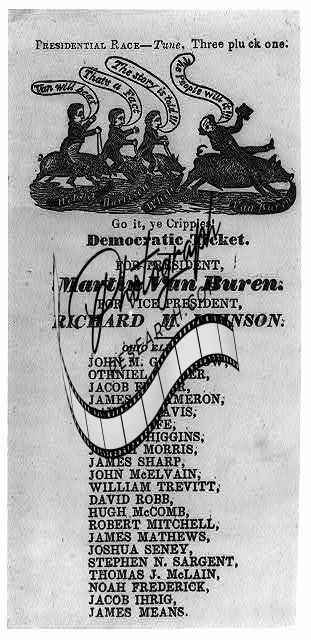 PRESIDENTIAL RACE—Tune, Three pluck one.
Van will beat
That's a Fact
The story is told !!!
The People will it !!
Van Buren
Go it, ye Cripples!
Democratic Ticket.
FOR PRESIDENT,
Martin Van Buren.
FOR VICE PRESIDENT,
RICHARD M. JOHNSON.
OHIO
JOHN M.
OTHNIEL
JACOB
JAMES CAMERON,
DAVIS,
HIGGINS,
MORRIS,
JAMES SHARP,
JOHN McELVAIN,
WILLIAM TREVITT,
DAVID ROBB,
HUGH McCOMB,
ROBERT MITCHELL,
JAMES MATHEWS,
JOSHUA SENEY,
STEPHEN N. SARGENT,
THOMAS J. McLAIN,
NOAH FREDERICK,
JACOB IHRIG,
JAMES MEANS.
Photograph
RESEARCH.COM